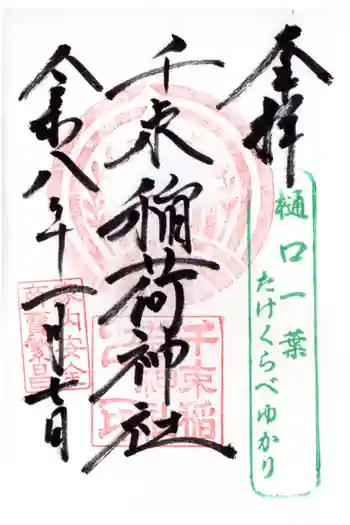 奉拝
樋口一葉
たけくらべゆかり
千束稲荷神社
千束稲
荷神社
家内安全
商売繁昌
令和八年一月七日